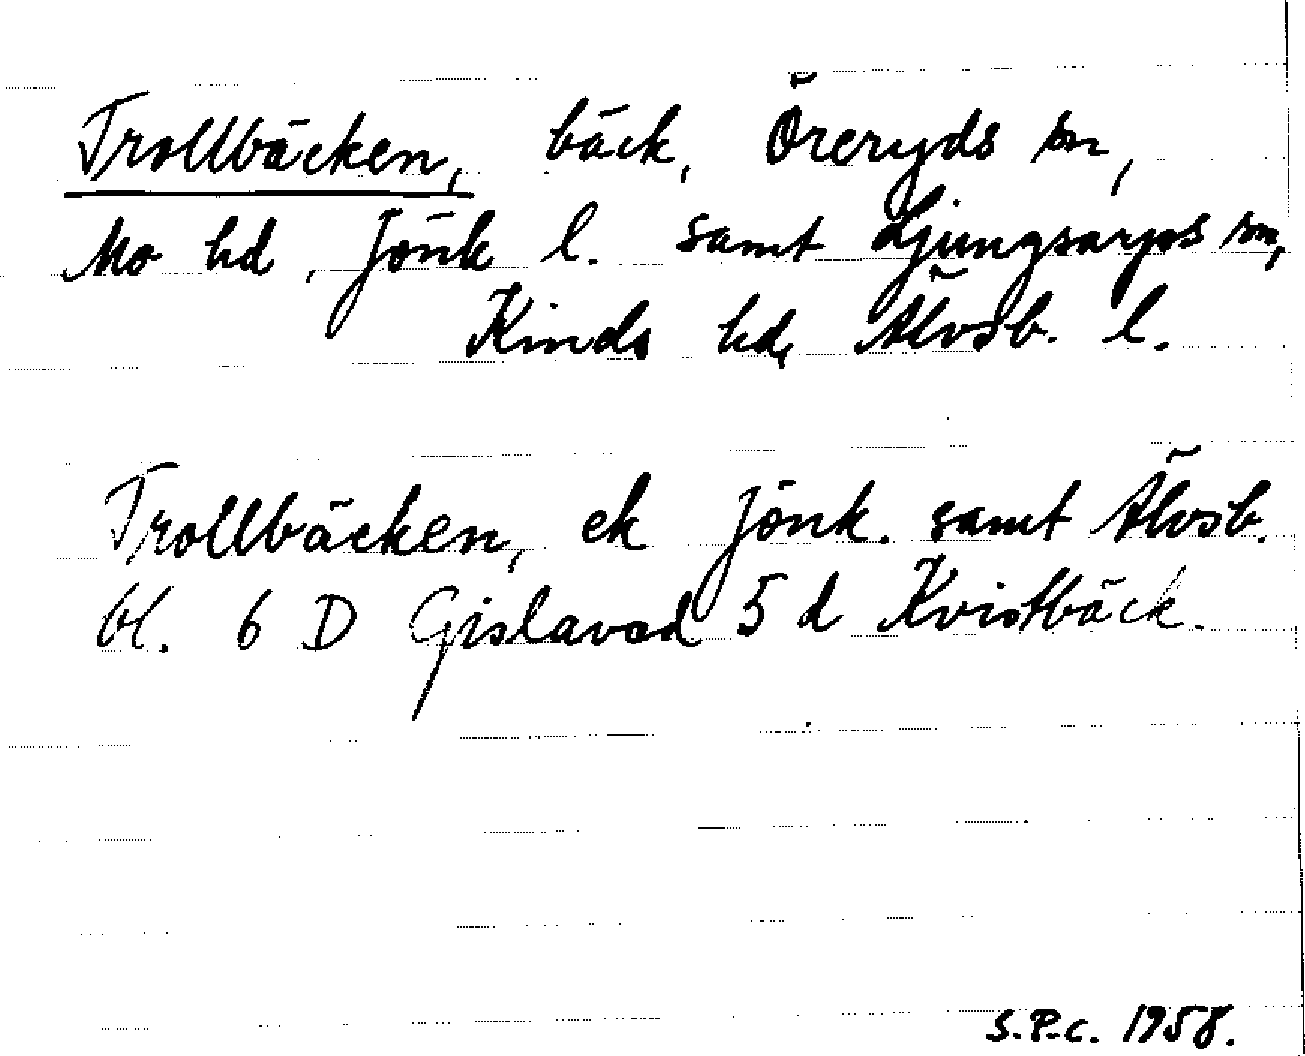 Trollbäcken, bäck, Öreryds sn,
Mo hd, Jönk l. samt Ljungsarps sn,
Kinds hd, Älvsb. l.
Trollbäcken, ek Jönk. samt Älvsb.
bl. 6 D Gislaved 5 d Kvistbäck.
S.P.C. 1958.